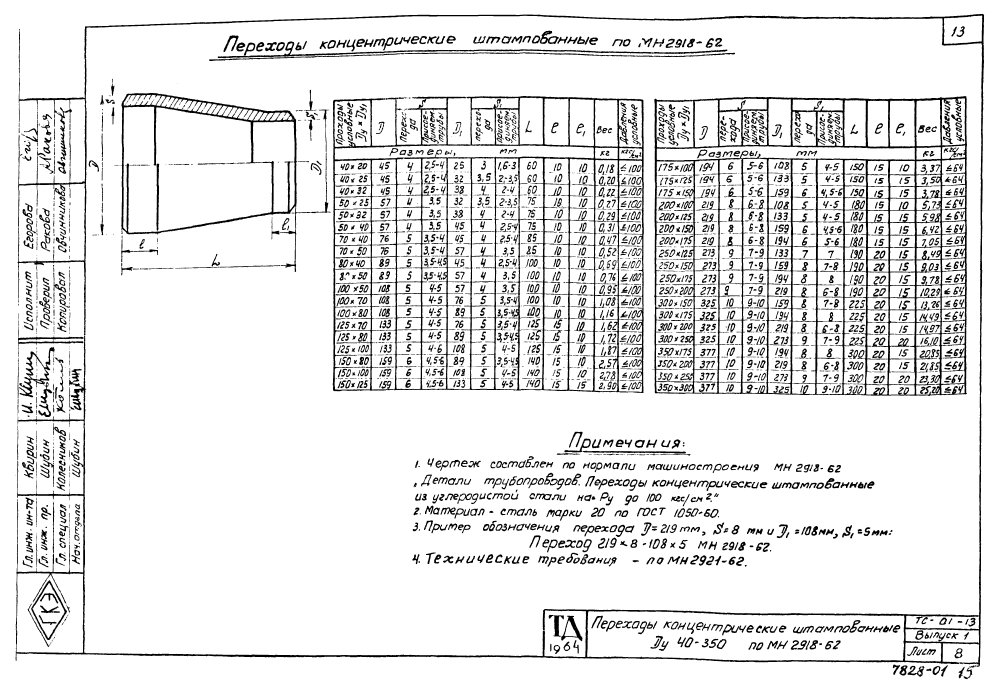 13
Переходы концентрические штампованные по МН 2918-62
S
D
D₁
S₁
l
l₁
L
Проходы условные Dу × Dу₁ | D | S: перехода | S: присоединяем. трубы | D₁ | S₁: перехода | S₁: присоединяем. трубы | L | l | l₁ | Вес | Давления условные
Размеры, мм | кг | кгс/см²
40×20 45 4 2,5-4 25 3 1,6-3 60 10 10 0,18 ≤100
40×25 45 4 2,5-4 32 3,5 2-3,5 60 10 10 0,20 ≤100
40×32 45 4 2,5-4 38 4 2-4 60 10 10 0,22 ≤100
50×25 57 4 3,5 32 3,5 2-3,5 75 10 10 0,27 ≤100
50×32 57 4 3,5 38 4 2-4 75 10 10 0,29 ≤100
50×40 57 4 3,5 45 4 2,5-4 75 10 10 0,31 ≤100
70×40 76 5 3,5-4 45 4 2,5-4 85 10 10 0,47 ≤100
70×50 76 5 3,5-4 57 4 3,5 85 10 10 0,52 ≤100
80×40 89 5 3,5-4,5 45 4 2,5-4 100 10 10 0,69 ≤100
80×50 89 5 3,5-4,5 57 4 3,5 100 10 10 0,76 ≤100
100×50 108 5 4-5 57 4 3,5 100 10 10 0,95 ≤100
100×70 108 5 4-5 76 5 3,5-4 100 10 10 1,08 ≤100
100×80 108 5 4-5 89 5 3,5-4,5 100 10 10 1,16 ≤100
125×70 133 5 4-5 76 5 3,5-4 125 15 10 1,62 ≤100
125×80 133 5 4-5 89 5 3,5-4,5 125 15 10 1,72 ≤100
125×100 133 5 4-6 108 5 4-5 125 15 10 1,87 ≤100
150×80 159 6 4,5-6 89 5 3,5-4,5 140 15 10 2,57 ≤100
150×100 159 6 4,5-6 108 5 4-5 140 15 10 2,78 ≤100
150×125 159 6 4,5-6 133 5 4-5 140 15 15 2,90 ≤100
Проходы условные Dу × Dу₁ | D | S: перехода | S: присоединяем. трубы | D₁ | S₁: перехода | S₁: присоединяем. трубы | L | l | l₁ | Вес | Давления условные
Размеры, мм | кг | кгс/см²
175×100 194 6 5-6 108 5 4-5 150 15 10 3,37 ≤64
175×125 194 6 5-6 133 5 4-5 150 15 15 3,50 ≤64
175×150 194 6 5-6 159 6 4,5-6 150 15 15 3,78 ≤64
200×100 219 8 6-8 108 5 4-5 180 15 10 5,73 ≤64
200×125 219 8 6-8 133 5 4-5 180 15 15 5,98 ≤64
200×150 219 8 6-8 159 6 4,5-6 180 15 15 6,42 ≤64
200×175 219 8 6-8 194 6 5-6 180 15 15 7,05 ≤64
250×125 273 9 7-9 133 7 7 190 20 15 8,49 ≤64
250×150 273 9 7-9 159 8 7-8 190 20 15 9,03 ≤64
250×175 273 9 7-9 194 8 8 190 20 15 9,78 ≤64
250×200 273 9 7-9 219 8 6-8 190 20 15 10,29 ≤64
300×150 325 10 9-10 159 8 7-8 225 20 15 13,26 ≤64
300×175 325 10 9-10 194 8 8 225 20 15 14,49 ≤64
300×200 325 10 9-10 219 8 6-8 225 20 15 14,97 ≤64
300×250 325 10 9-10 273 9 7-9 225 20 20 16,10 ≤64
350×175 377 10 9-10 194 8 8 300 20 15 20,85 ≤64
350×200 377 10 9-10 219 8 6-8 300 20 15 21,85 ≤64
350×250 377 10 9-10 273 9 7-9 300 20 20 23,30 ≤64
350×300 377 10 9-10 325 10 9-10 300 20 20 25,20 ≤64
Примечания:
1. Чертеж составлен по нормали машиностроения МН 2918-62
„Детали трубопроводов. Переходы концентрические штампованные
из углеродистой стали на Ру до 100 кгс/см²."
2. Материал - сталь марки 20 по ГОСТ 1050-60.
3. Пример обозначения перехода D=219мм, S=8 мм и D₁=108мм, S₁=5мм:
Переход 219×8-108×5 МН 2918-62.
4. Технические требования - по МН 2921-62.
Исполнит Егорова
Проверил Ракова
Копировал Овчинникова
Гл. инж. ин-та Квирин
Гл. инж. пр. Шубин
Гл. специал Колесников
Нач. отдела Шубин
ГКЭ
ТД
1964
Переходы концентрические штампованные
Dу 40-350 по МН 2918-62
ТС-01-13
Выпуск 1
Лист 8
7828-01 15